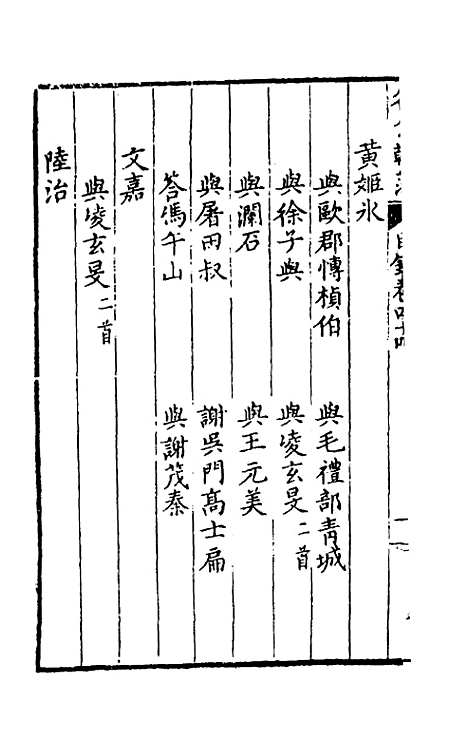 黄姬水
與歐郡博楨伯　與毛禮部青城
與徐子與　與凌玄旻二首
與瀾石　與王元美
與屠田叔　謝吳門高士扁
答馮午山　與謝茂秦
文嘉
與凌玄旻二首
陸治